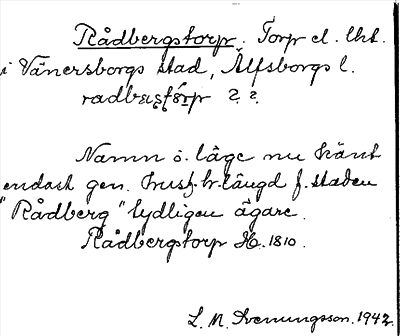 Rådbergstorp. Torp el. lht.
i Vänersborgs stad, Älfsborgs l.
Namn o. läge nu känt
endast gen. husf.br.längd f. staden
"Rådberg" tydligen ägare.
Rådbergstorp H. 1810.
L. M. Svenungsson. 1942.